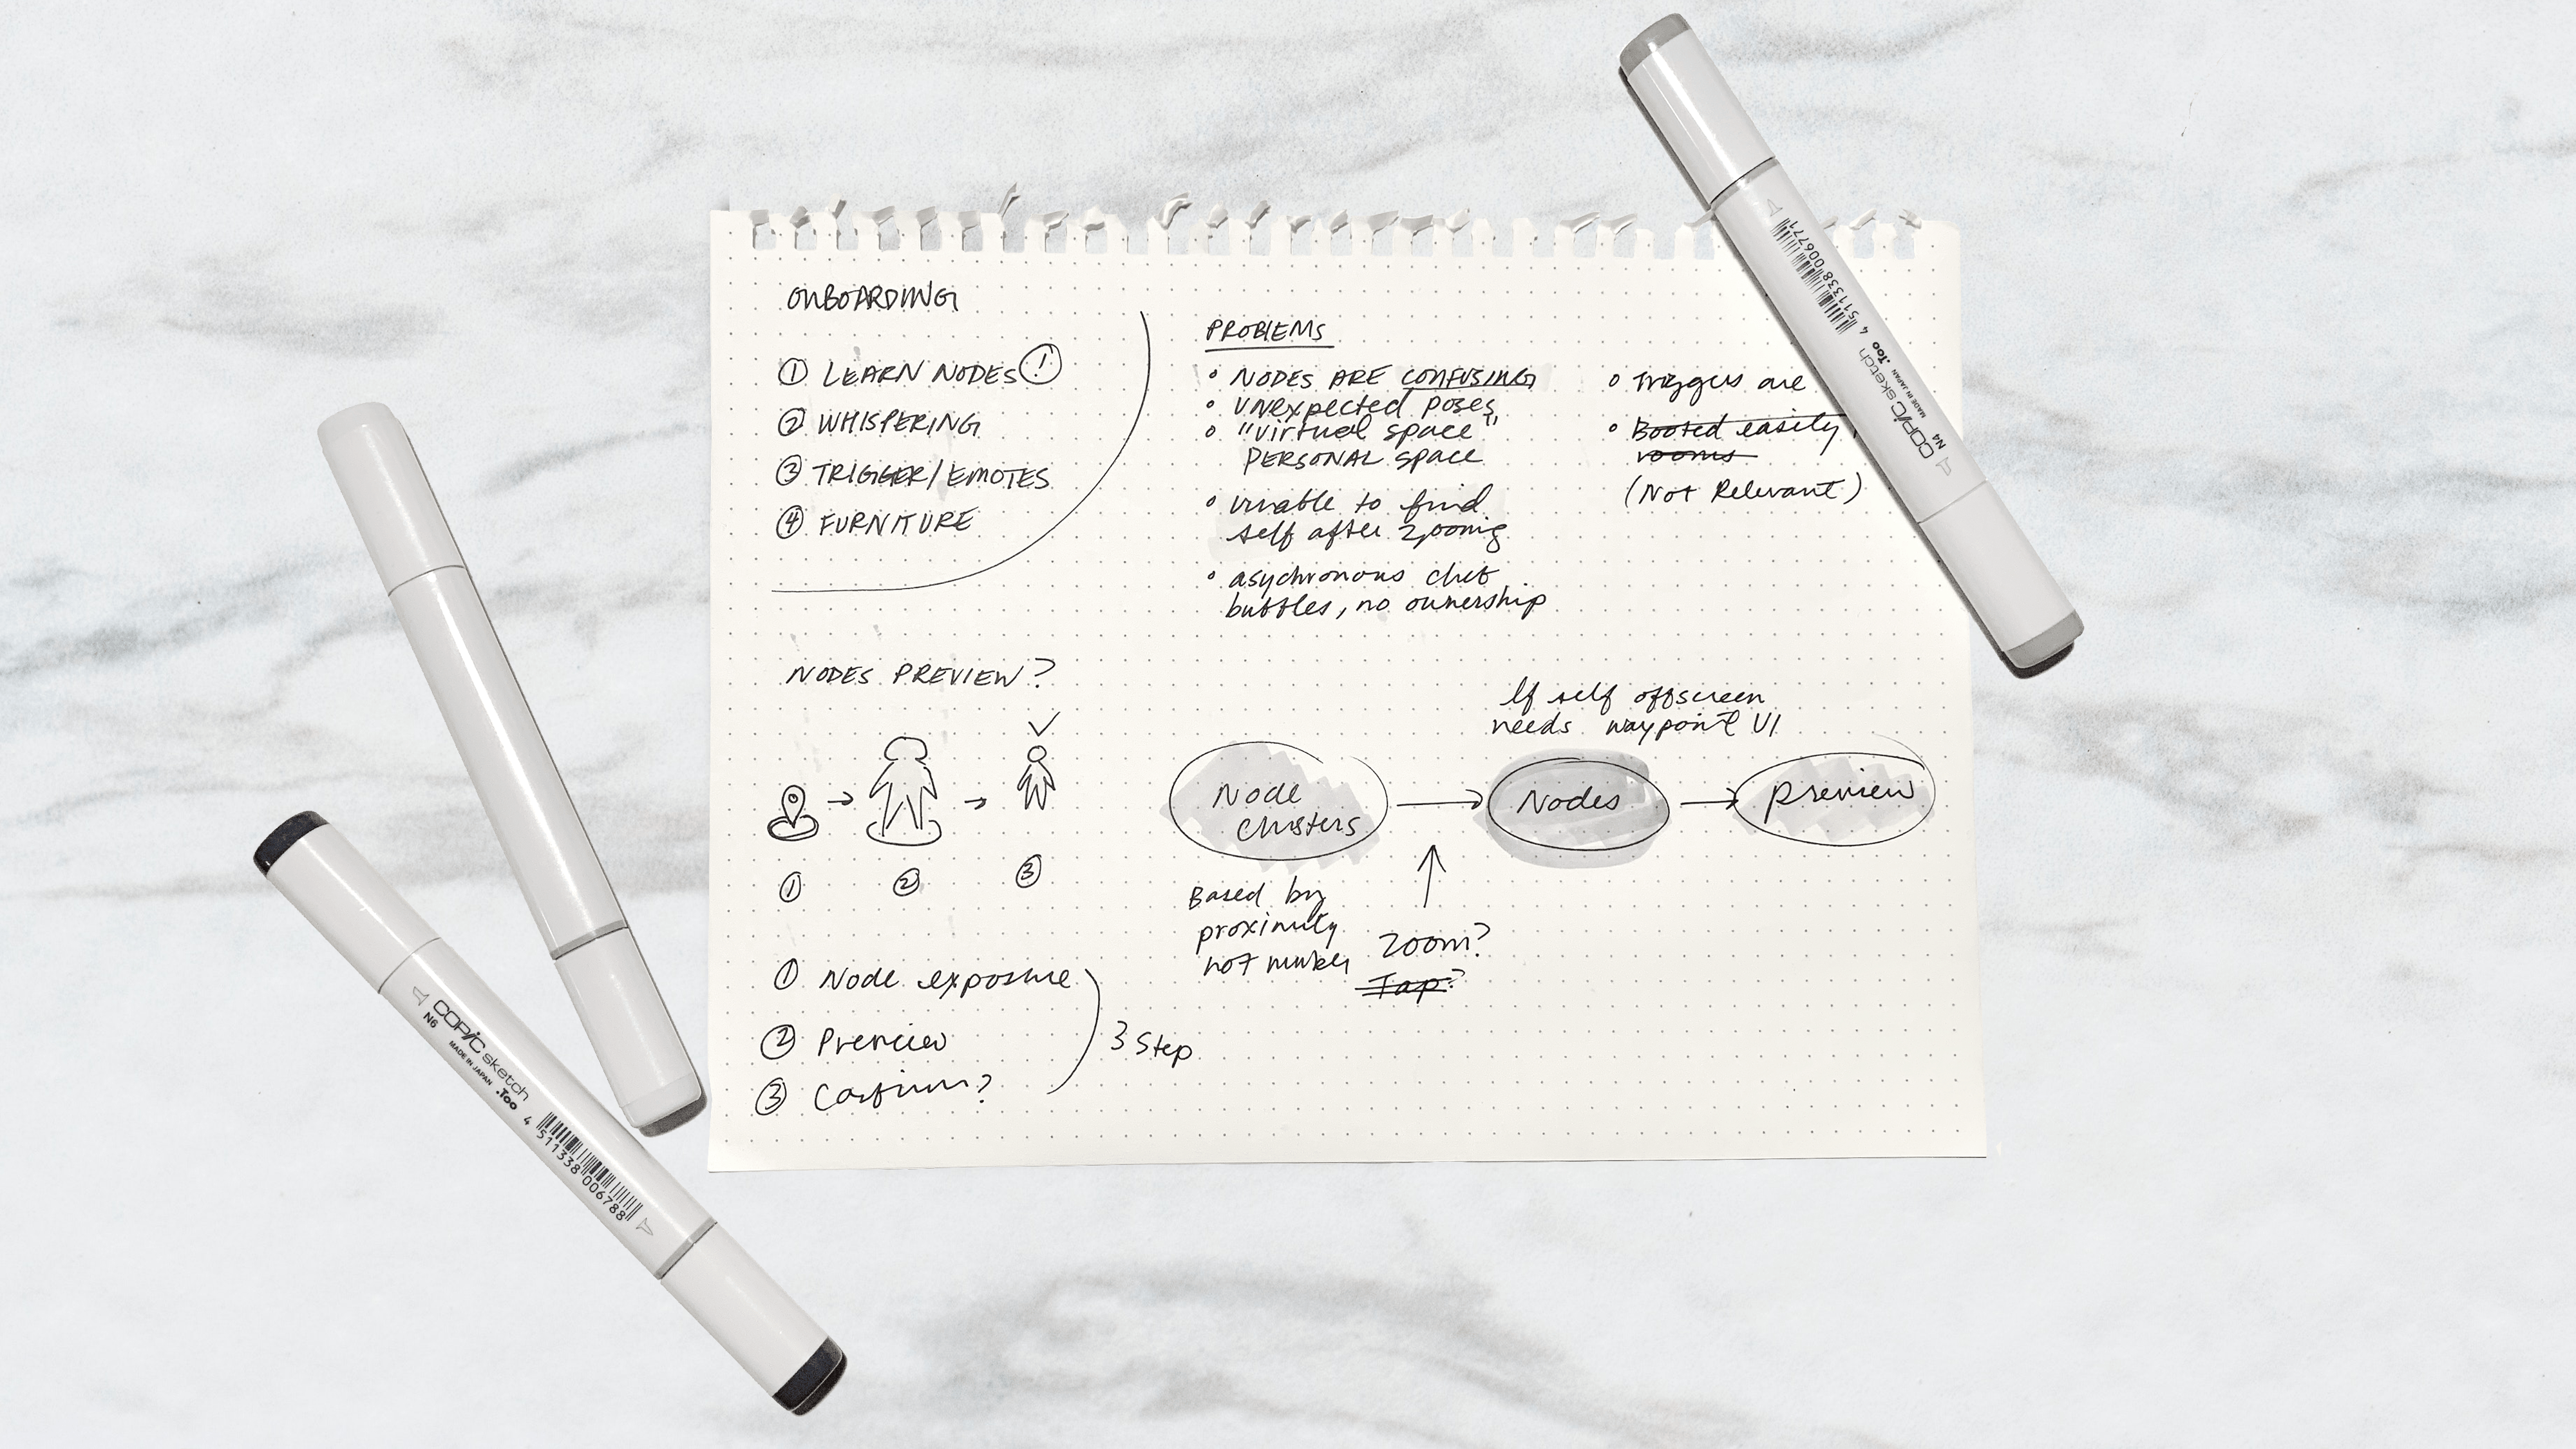 ONBOARDING
① LEARN NODES !
② WHISPERING
③ TRIGGER/EMOTES
④ FURNITURE
PROBLEMS
NODES ARE CONFUSING
UNEXPECTED POSES
"virtual space"
PERSONAL space
unable to find
self after zooming
asychronous chat
bubbles, no ownership
Triggers are
Booted easily
rooms
(Not Relevant)
NODES PREVIEW?
① ② ③
① Node exposure
② Preview
③ Confirm?
3 Step
If self offscreen
needs waypoint UI
Node
clusters
Nodes
preview
Based by
proximity
not
Zoom?
Tap?
4 511338 006771
COPIC sketch
N4
MADE IN JAPAN .Too
COPIC sketch
N6
MADE IN JAPAN .Too
4 511338 006788